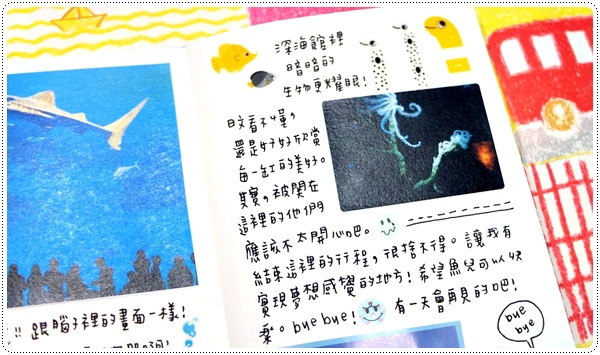 !! 跟腦子裡的畫面一樣!
深海館裡
暗暗的
生物更耀眼!
日文看不懂,
還是好好欣賞
每一缸的美好。
其實,被関在
這裡的他們
應該不太開心吧。
結束這裡的行程,很捨不得。讓我有
實現夢想感覺的地方!希望魚兒可以快
樂。bye bye! 有一天會再見的吧!
bye
bye